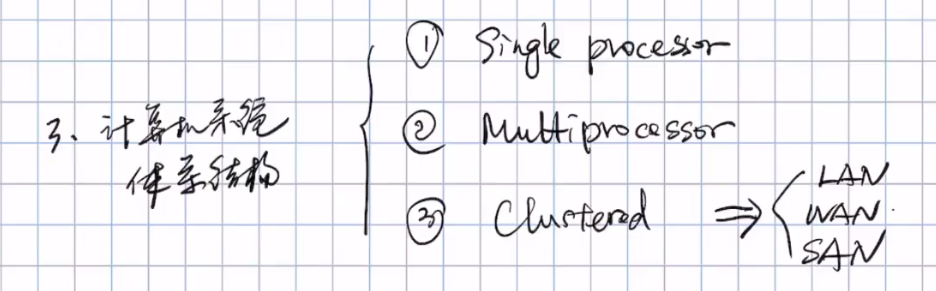 3、计算机系统
体系结构
① Single processor
② Multiprocessor
③ Clustered ⇒
LAN
WAN.
SAN